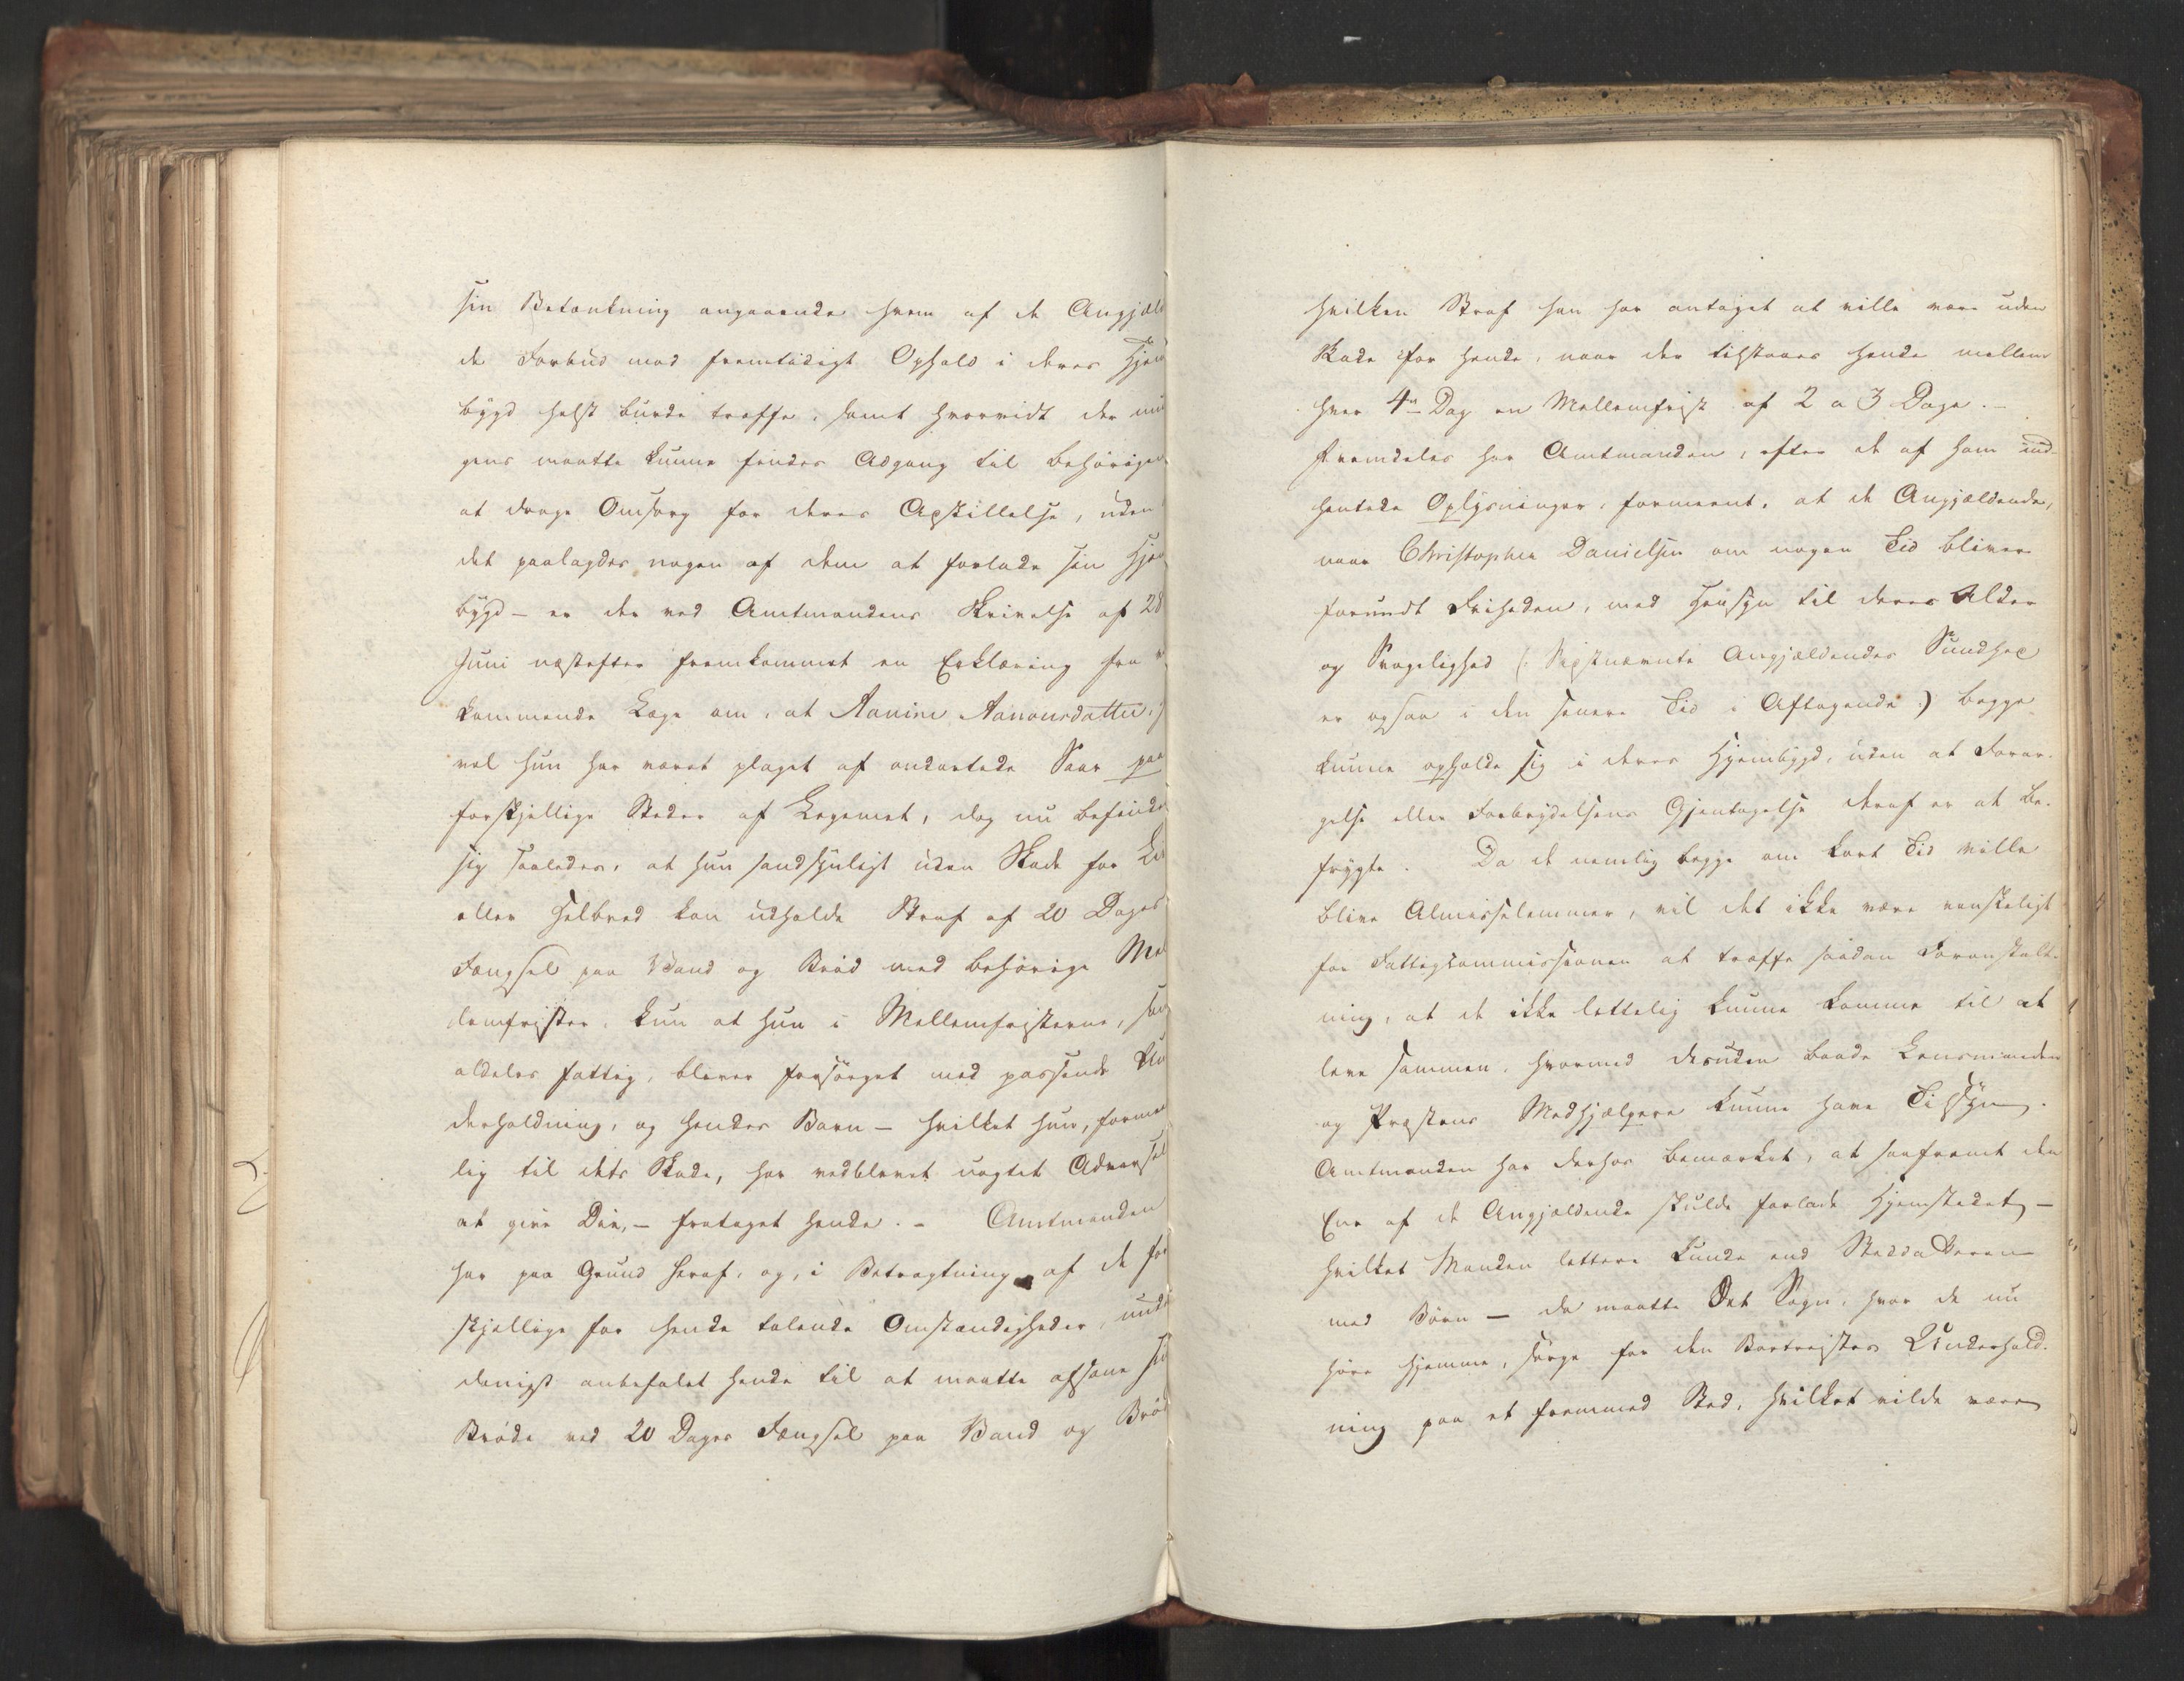 sin Betænkning angaaende hvem af de Angjæld
de Forbud mod fremtidigt Ophold i deres Hjem
bygd helst burde træffe, samt hvorvidt der mu
gens maatte kunne findes Adgang til behørigen
at drage Omsorg for deres Adskillelse, uden
det paalagdes nogen af dem at forlade sin Hjem
bygd – er der ved Amtmandens Skrivelse af 28
Juni næstefter fremkommet en Erklæring fra v
kommende Læge om, at Aanine Aanonsdatter,
vel hun har været plaget af ondartede Saar paa
forskjellige Steder af Legemet, dog nu befinder
sig saaledes, at hun sandsynligt uden Skade for Liv
eller Helbred kan udholde Straf af 20 Dages
Fængsel paa Vand og Brød med behørige Mel
lemfrister, kun at hun i Mellemfristerne, som
aldeles fattig, bliver forsørget med passende Un
derholdning, og hendes Barn – hvilket hun, forment
lig til dets Skade, har vedblevet uagtet Advarsel
at give Die, – frataget hende. – Amtmanden
har paa Grund heraf, og, i Betragtning af de for
skjellige for hende talende Omstændigheder, unde
danigst anbefalet hende til at maatte afsone sin
Brøde ved 20 Dages Fængsel paa Vand og Brød
hvilken Straf han har antaget at ville være uden
Skade for hende, naar der tilstaaes hende mellem
hver 4de Dag en Mellemfrist af 2 a 3 Dage. –
Fremdeles har Amtmanden, efter de af ham ind-
hentede Oplysninger, formeent, at de Angjældende,
naar Christopher Danielsen om nogen Tid bliver
forundt Friheden, med Hensyn til deres Alder
og Svagelighed (: Sidstnævnte Angjældendes Sundhed
er ogsaa i den senere Tid i Aftagende :) begge
kunne opholde sig i deres Hjembygd, uden at Forar-
gelse eller Forbrydelsens Gjentagelse deraf er at be-
frygte. Da de nemlig begge om kort Tid ville
blive Almisselemmer, vil det ikke være vanskeligt
for Fattigcommissionen at træffe saadan Foranstalt-
ning, at de ikke lettelig kunne komme til at
leve sammen, hvormed desuden baade Lensmanden
og Præstens Medhjælpere kunne have Tilsyn.
Amtmanden har derhos bemærket, at saafremt den
Ene af de Angjældende skulde forlade Hjemstedet, –
hvilket Manden lettere kunde end Steddatteren
med Børn – da maatte Det Sogn, hvor de nu
høre hjemme, sørge for den Bortreistes Underhold-
ning paa et fremmed Sted, hvilket vilde være